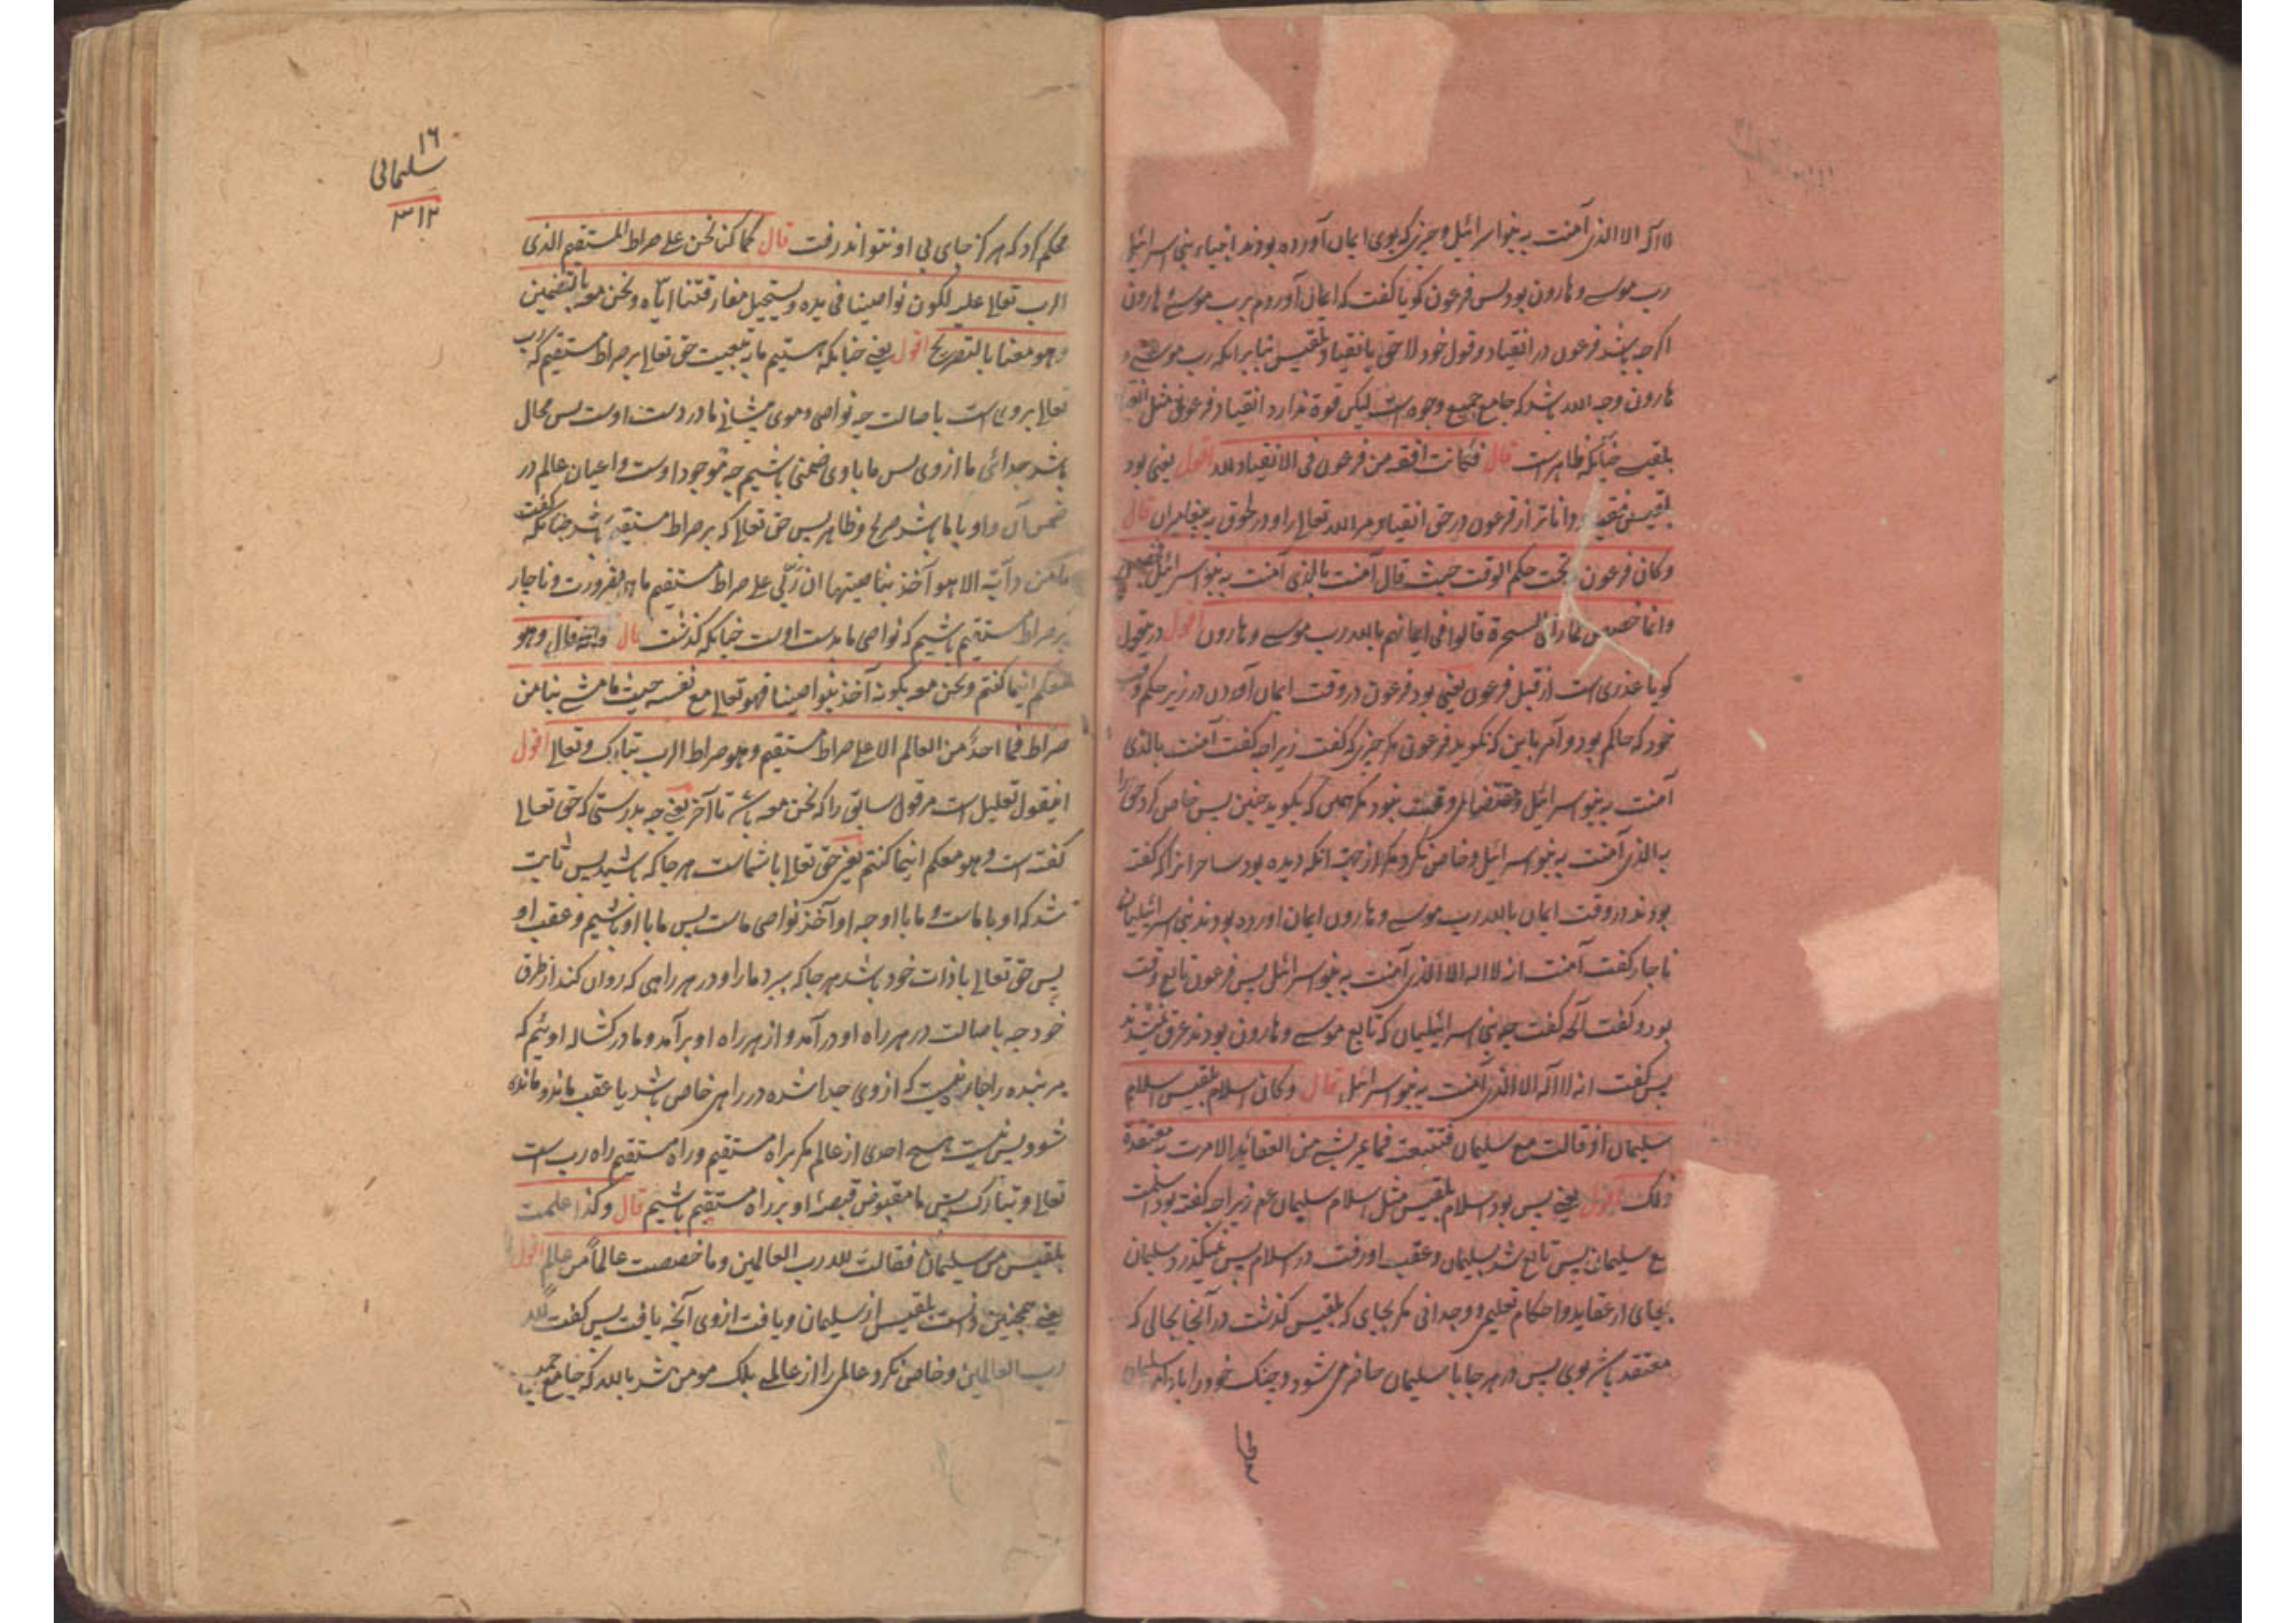 لا اله الا الذی آمنت به بنو اسرائیل و چیزی که بوی ایمان آورده بودند انبیاء بنی اسرائیل
رب موسی و هارون بود پس فرعون گویا گفت که ایمان آوردم برب موسی و هارون
اگرچه باشد فرعون در انقیاد و قول خود لاحق بانقیاد بلقیس بنا بر آنکه رب موسی و
هارون وجه الله باشد که جامع جمیع وجوه است لیکن قوة ندارد انقیاد فرعونی مثل انقیاد
بلقیس چنانکه ظاهر است قال فکانت افقه من فرعون فی الانقیاد لله اقول یعنی بود
بلقیس فقیه و داناتر از فرعون در حق انقیاد مر الله تعالی را و در طوق به پیغامبران قال
و کان فرعون تحت حکم الوقت حیث قال آمنت بالذی آمنت به بنو اسرائیل فخصص
و انما خصص لما رأی السحرة قالوا فی ایمانهم بالله رب موسی و هارون اقول درین قول
گویا عذری است از قبل فرعون یعنی بود فرعون در وقت ایمان آوردن در زیر حکم وقت
خود که حاکم بود و آمر باین که نگوید فرعون مگر چیزی که گفت زیرا چه گفت آمنت بالذی
آمنت به بنو اسرائیل و مقتضای وقت نبود مگر همین که بگوید چنین پس خاص کرد حق را
به الذی آمنت به بنو اسرائیل و خاص نکرد مگر از جهت آنکه دیده بود ساحرانرا که گفته
بودند در وقت ایمان بالله رب موسی و هارون ایمان آورده بودند بنی اسرائیلیان
ناچار گفت آمنت انه لا اله الا الذی آمنت به بنو اسرائیل پس فرعون تابع وقت
بود و گفت آنچه گفت چو بنی اسرائیلیان که تابع موسی و هارون بودند غرق نشدند
پس گفت انه لا اله الا الذی آمنت به بنو اسرائیل قال و کان اسلام بلقیس اسلام
سلیمان اذ قالت مع سلیمان فتتبعت فما یمر بشی من العقاید الا مرت به معتقدة
ذلک اقول یعنی پس بود اسلام بلقیس مثل اسلام سلیمان عم زیرا چه گفته بود اسلمت
مع سلیمان پس تابع شد سلیمان و عقب او رفت در اسلام پس نمیگذرد سلیمان
بجای از عقاید و احکام تعلیمی و وجدانی مگر بجای که بلقیس گذشت در آنجا بحالی که
معتقد باشد وی پس در هر جا با سلیمان حاضر می شود و چنگ خود را بادامن سلیمان
۱۶
سلیمانی
۳۱۲
محکم کرد که هرگز جای بی او نتواند رفت قال کما کنا نحن علی صراط المستقیم الذی
الرب تعالی علیه لکون نواصینا فی یده و یستحیل مفارقتنا ایاه و نحن معه بالتضمین
و هو معنا بالتصریح اقول یعنی چنانکه هستیم ما به تبعیت حق تعالی بر صراط مستقیم که رب
تعالی بروی است باصالت چه نواصی و موی پیشانی ما در دست اوست پس محال
باشد جدائی ما از وی پس ما با وی ضمنی باشیم چه موجود اوست و اعیان عالم در
ضمن آن و او با ما باشد صریح و ظاهر پس حق تعالی که بر صراط مستقیم باشد چنانکه گفت
ما من دآبة الا هو آخذ بناصیتها ان ربی علی صراط مستقیم ما هم بضرورت و ناچار
بر صراط مستقیم باشیم که نواصی ما بدست اوست چنانکه گذشت قال فانه قال و هو
معکم اینما کنتم و نحن معه بکونه آخذ بنواصینا فهو تعالی مع نفسه حیث ما مشی بنا من
صراطه فما احد من العالم الا علی صراط مستقیم و هو صراط الرب تبارک و تعالی اقول
اینقول تعلیل است مر قول سابق را که نحن معه باشد تا آخر یعنی چه بدرستی که حق تعالی
گفته است و هو معکم اینما کنتم یعنی حق تعالی با شما است هر جا که باشید پس ثابت
شد که او با ماست و ما با او چه او آخذ نواصی ماست پس ما با او باشیم و عقب او
پس حق تعالی با ذات خود باشد هر جا که ببرد ما را و در هر راهی که روان کند از طرق
خود چه باصالت در هر راه او در آمد و از هر راه او بر آمد و ما در کشاله اوئیم که
مر بنده را جائز نیست که از وی جدا شده در راهی خاص باشد یا عقب ماند و مانده
شود پس نیست هیچ احدی از عالم مگر بر راه مستقیم و راه مستقیم راه رب است
تعالی و تبارک پس ما مقبوض قبضۀ او بر راه مستقیم باشیم قال و کذا علمت
بلقیس من سلیمان فقالت لله رب العالمین و ما خصصت عالماً من عالم اقول
یعنی همچنین دانست بلقیس از سلیمان و یافت از وی آنچه یافت پس گفت لله
رب العالمین و خاص نکرد عالمی را از عالمی بلکه مومن شد بالله که جامع جمیع